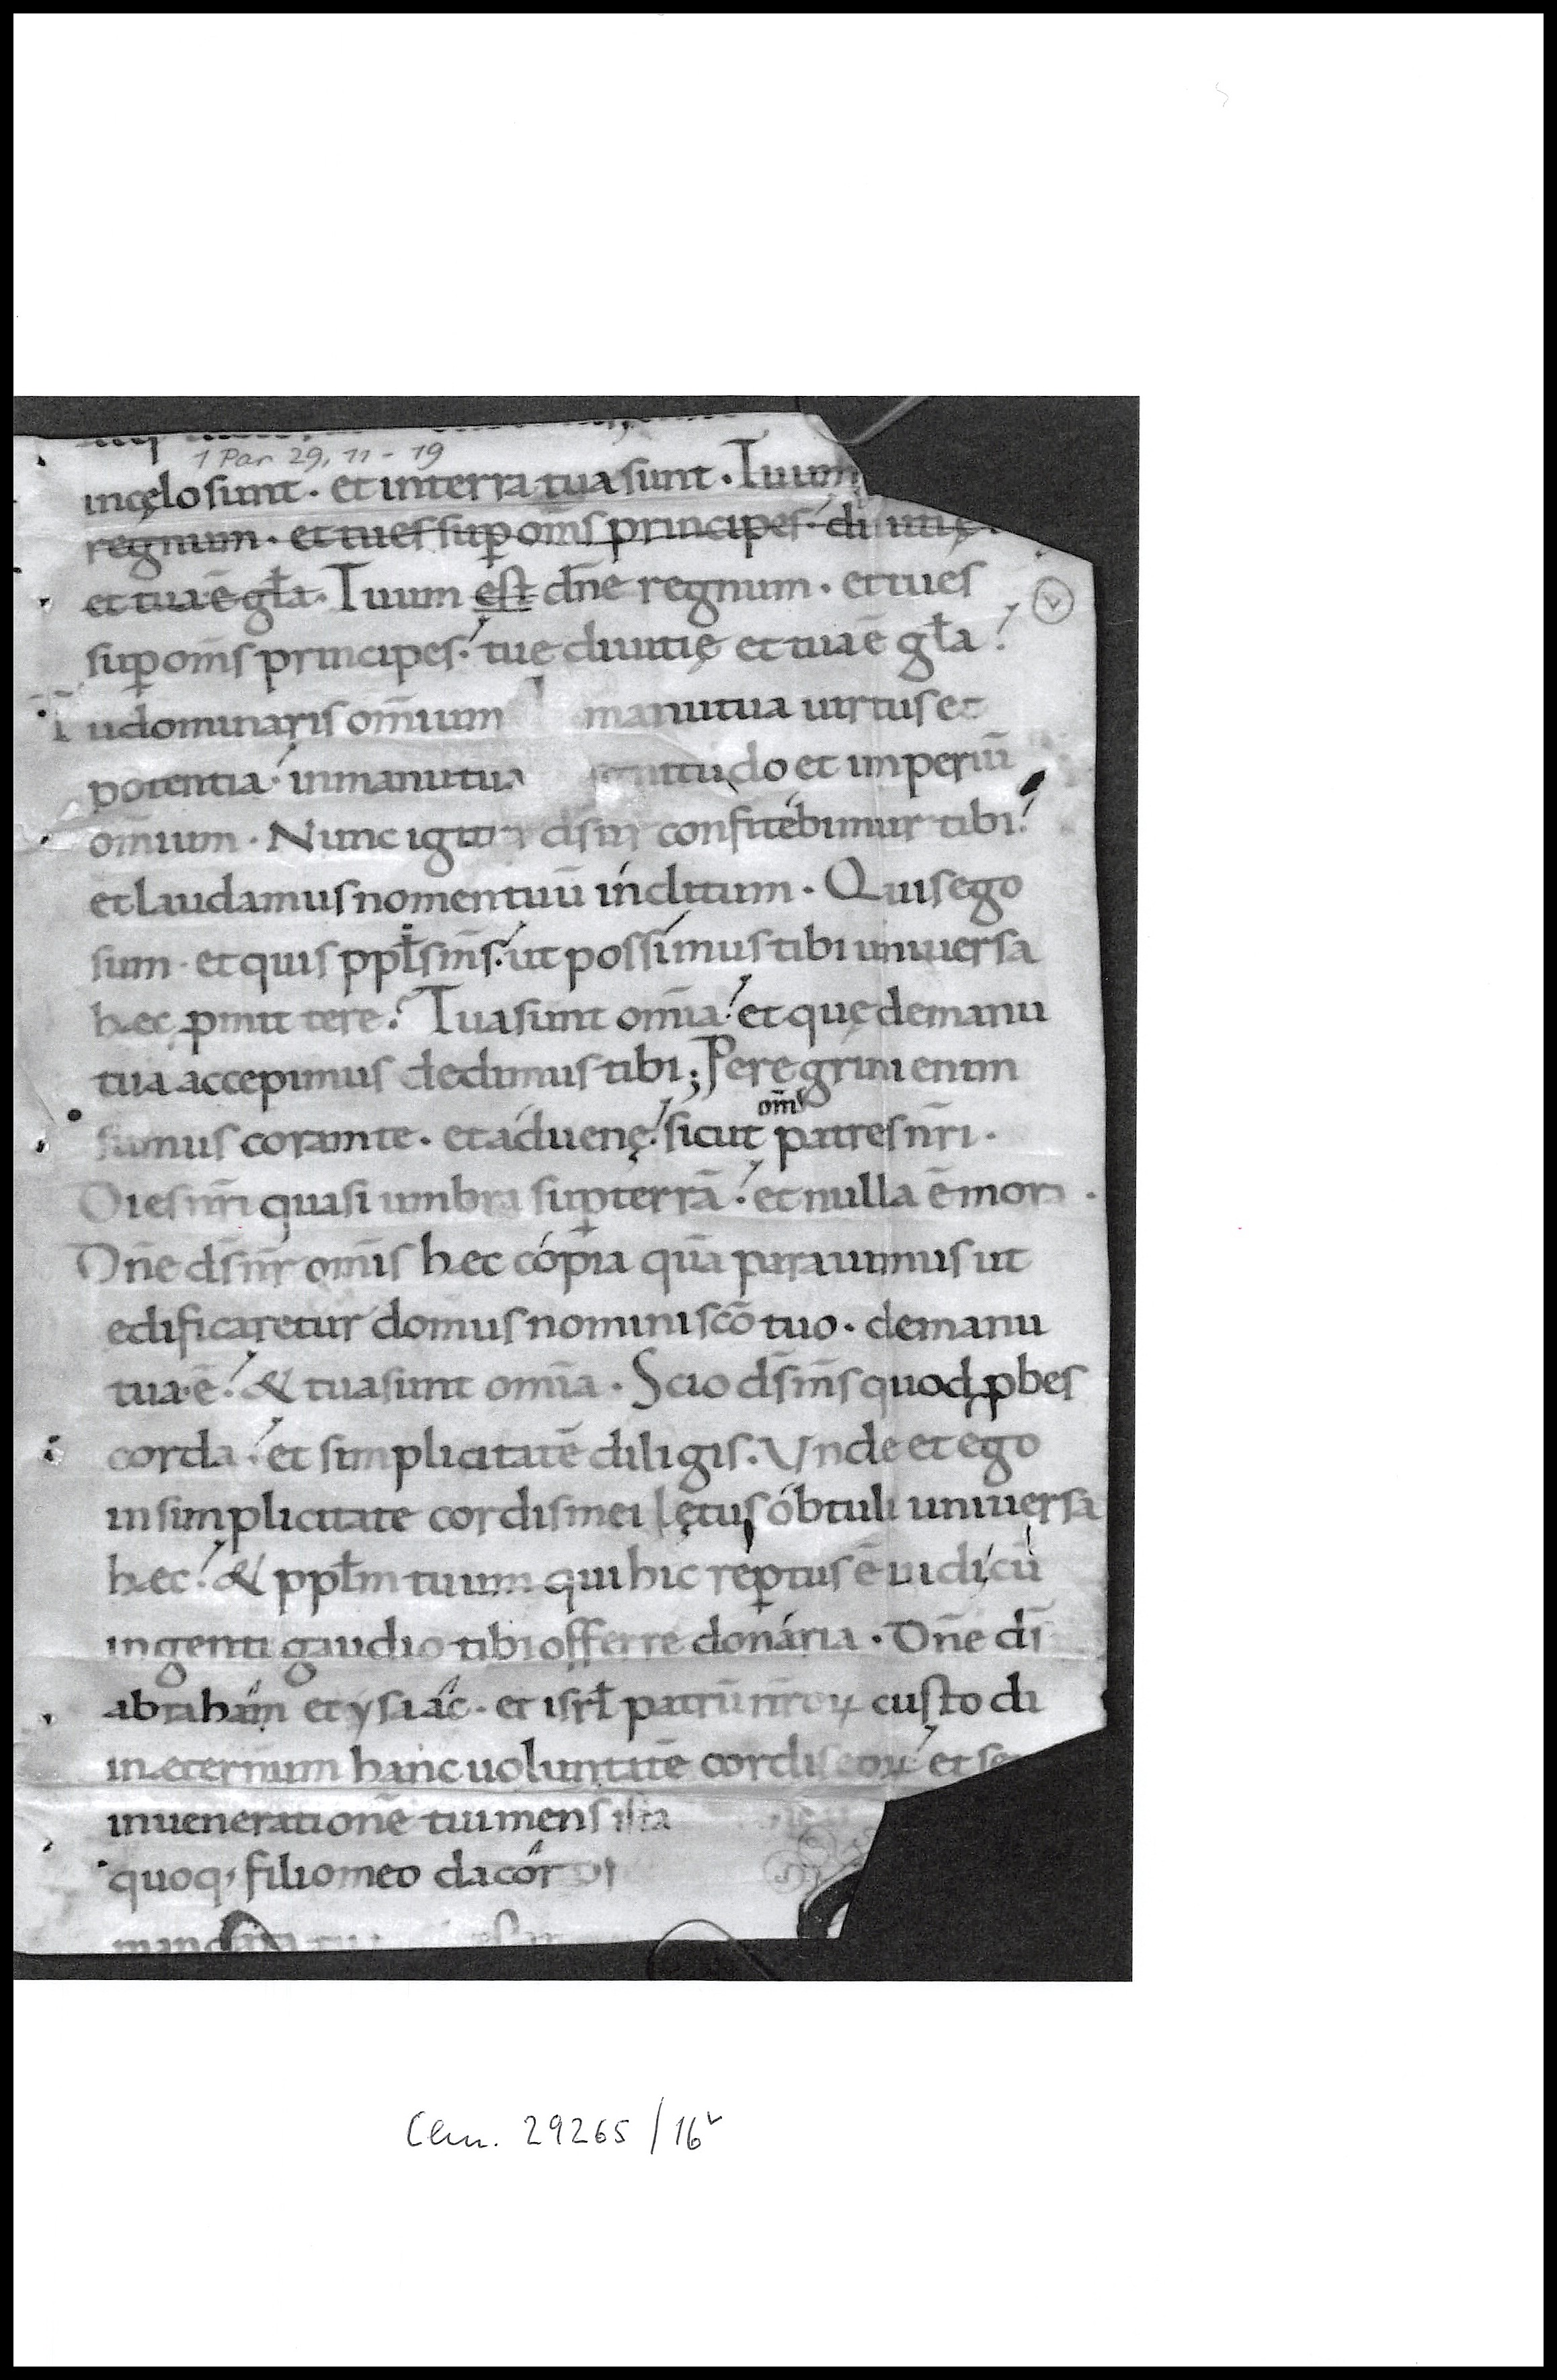 1 Par 29, 11 - 19
incęlo sunt · et interra tua sunt · Tuum
regnum · et tu es sup om̄s principes · diuitię ·
et tua ē gl̄a · Tuum est dn̄e regnum · et tu es
sup om̄s principes · tue diuitię et tua ē gl̄a
Tu dominaris om̄ium manu tua uirtus et
potentia · inmanu tua et imperiū
om̄ium · Nunc igitur ds̄ nr̄ confitebimur tibi
et laudamus nomen tuū inclitum · Quis ego
sum · et quis ppl̄s ms̄ ut possimus tibi uniuersa
hęc pmittere? Tua sunt om̄ia et quę demanu
tua accepimus dedimus tibi; Peregrini enim
om̄s
sumus coram te · et aduenę sicut patres nr̄i ·
Dies nr̄i quasi umbra sup terrā et nulla ē mora ·
Dn̄e ds̄ nr̄ om̄is hęc copia quā parauimus ut
edificaretur domus nomini sc̄o tuo · demanu
tua ē & tua sunt om̄ia · Scio ds̄ ms̄ quod pbes
corda et simplicitatē diligis · Vnde et ego
insimplicitate cordis mei lętus obtuli uniuersa
hęc & ppl̄m tuum qui hic reptus ē uidi cū
ingenti gaudio tibi offerre donaria · Dn̄e dī
abraham et ysaac · et isrl̄ patrū nr̄oꝝ custodi
inęternum hanc uoluntatē cordis eoꝝ et se
inuenerationē tui mens ista
quoq; filio meo da cor
v
Clm. 29265/16v